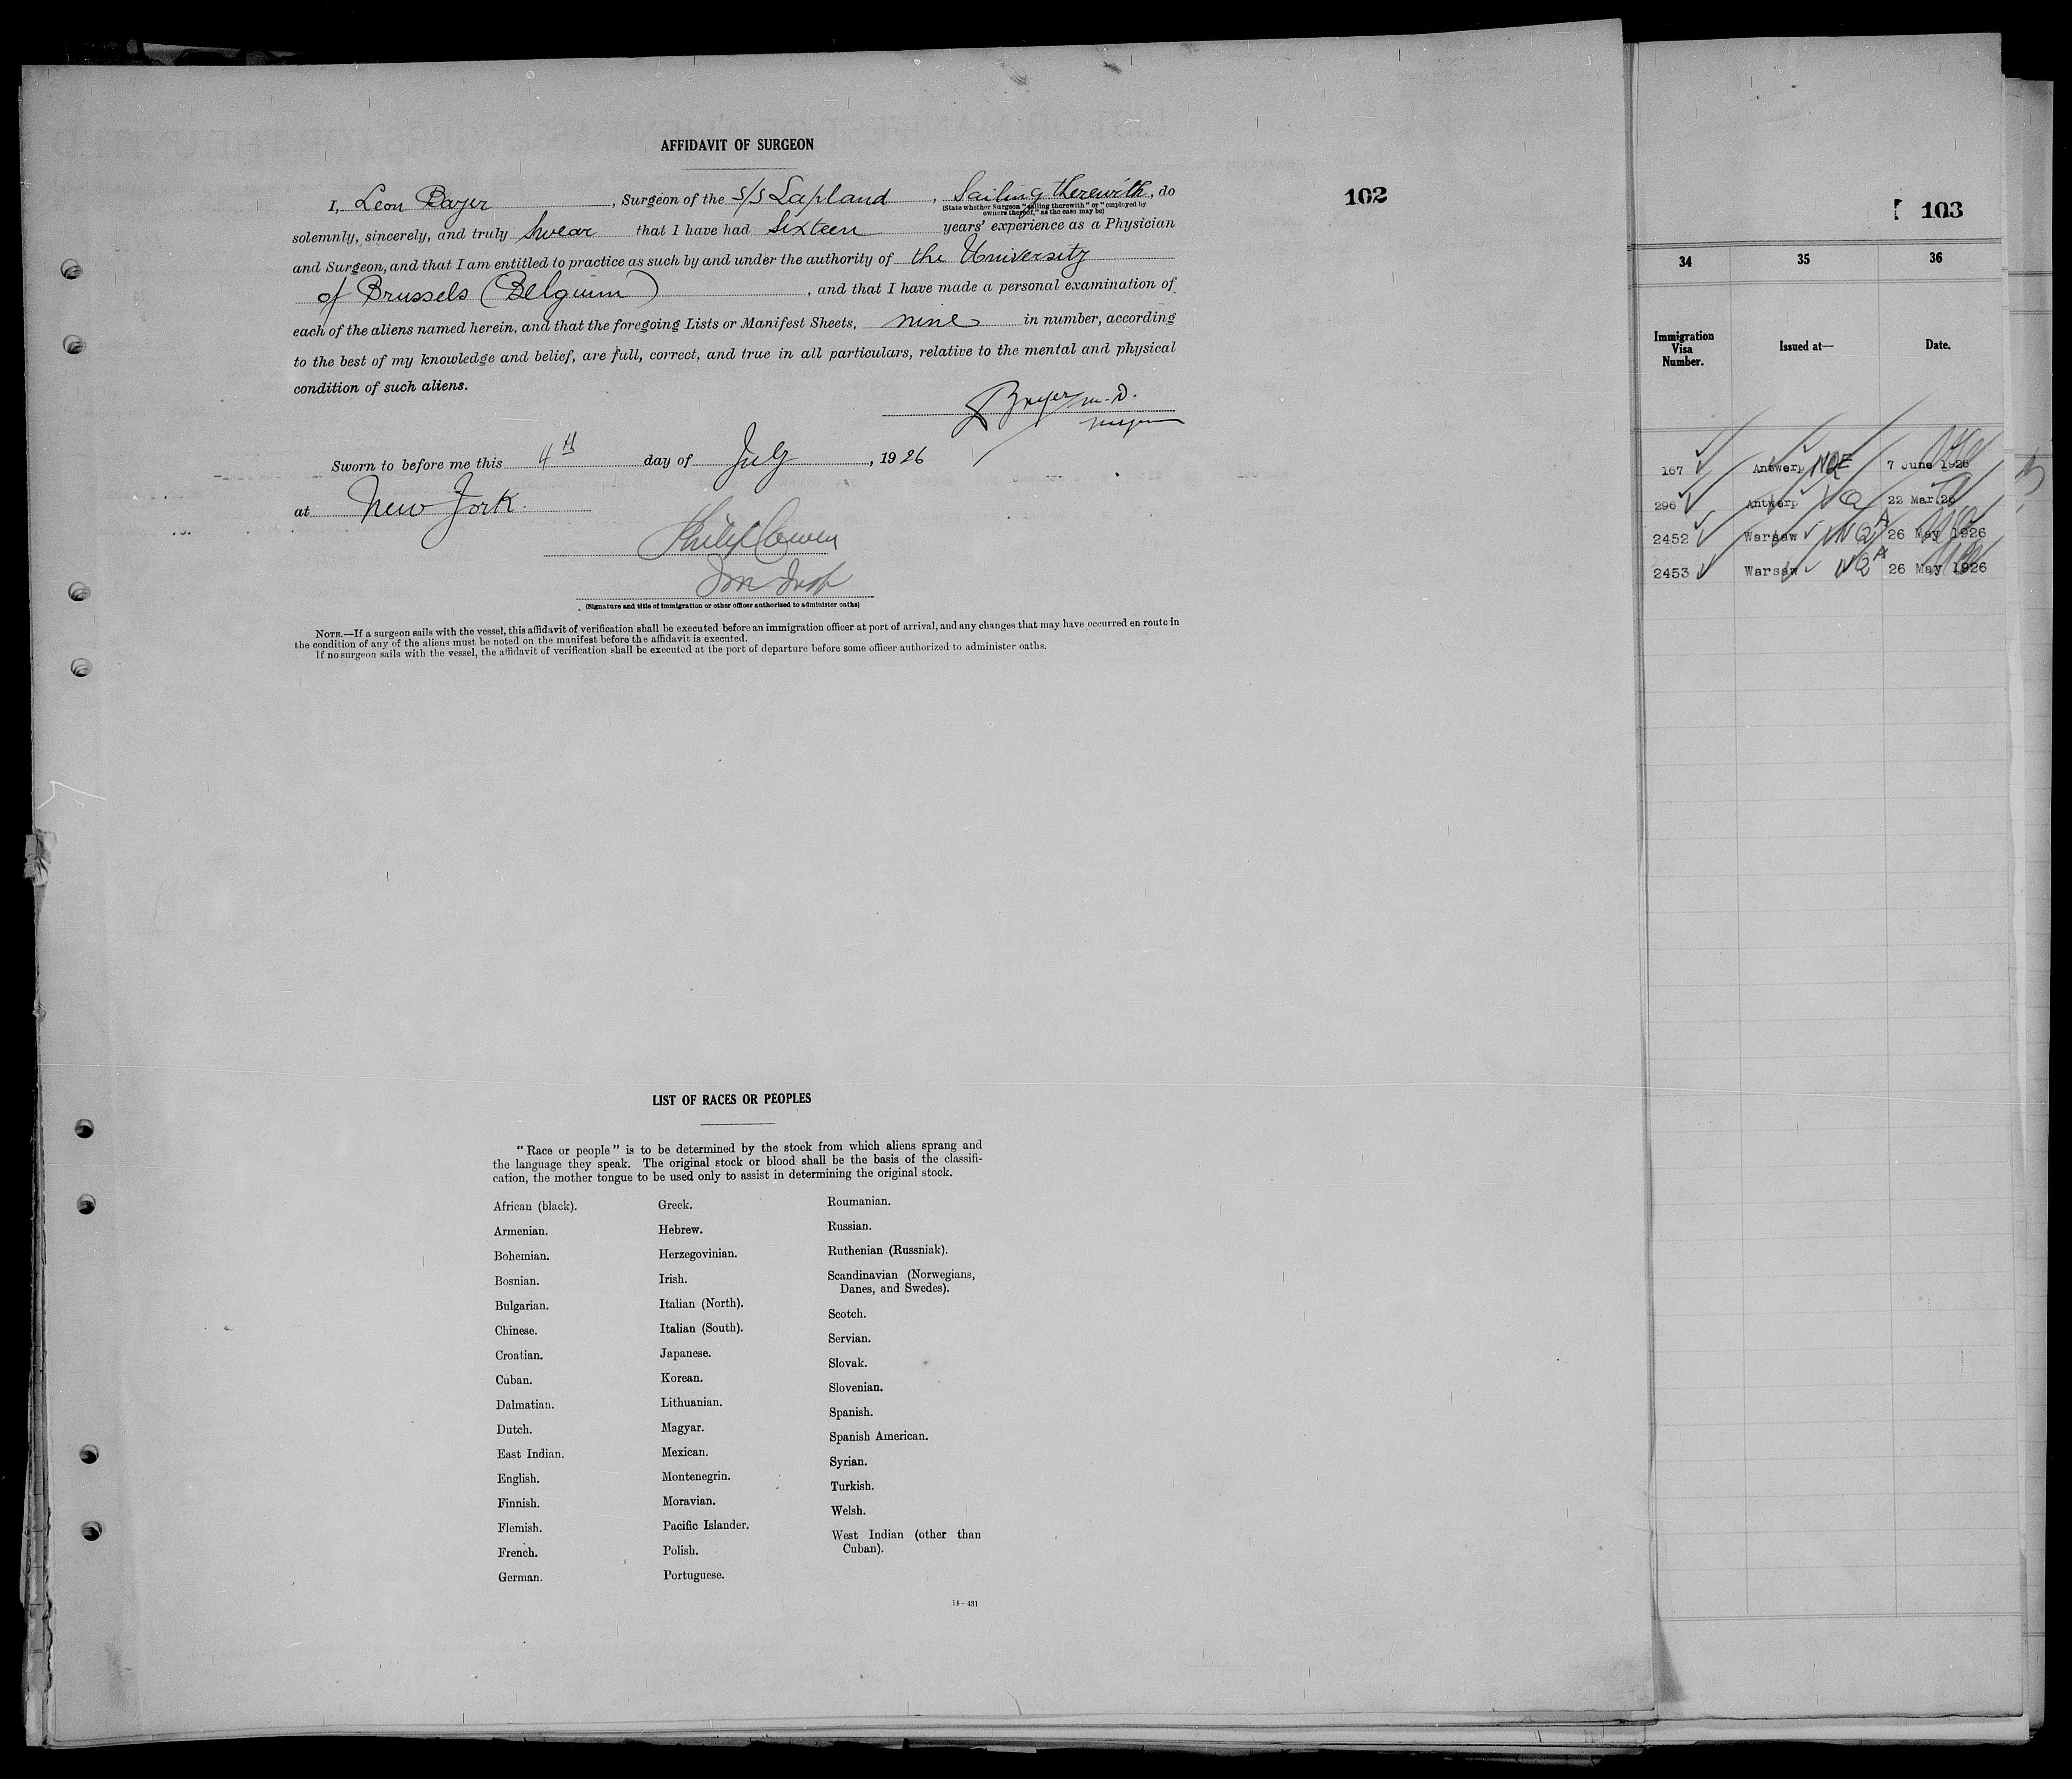 AFFIDAVIT OF SURGEON
I, Leon Bayer, Surgeon of the S/S Lapland, Sailing therewith, do
(State whether Surgeon "sailing therewith" or "employed by
owners thereof," as the case may be)
solemnly, sincerely, and truly swear that I have had Sixteen years' experience as a Physician
and Surgeon, and that I am entitled to practice as such by and under the authority of the University
of Brussels (Belgium), and that I have made a personal examination of
each of the aliens named herein, and that the foregoing Lists or Manifest Sheets, nine in number, according
to the best of my knowledge and belief, are full, correct, and true in all particulars, relative to the mental and physical
condition of such aliens.
Bayer M.D.
Sworn to before me this 4th day of July, 1926
at New York.
Philip Cowen
Imm Insp
(Signature and title of immigration or other officer authorized to administer oaths)
NOTE.—If a surgeon sails with the vessel, this affidavit of verification shall be executed before an immigration officer at port of arrival, and any changes that may have occurred en route in
the condition of any of the aliens must be noted on the manifest before the affidavit is executed.
If no surgeon sails with the vessel, the affidavit of verification shall be executed at the port of departure before some officer authorized to administer oaths.
102
LIST OF RACES OR PEOPLES
"Race or people" is to be determined by the stock from which aliens sprang and
the language they speak. The original stock or blood shall be the basis of the classifi-
cation, the mother tongue to be used only to assist in determining the original stock.
African (black).
Armenian.
Bohemian.
Bosnian.
Bulgarian.
Chinese.
Croatian.
Cuban.
Dalmatian.
Dutch.
East Indian.
English.
Finnish.
Flemish.
French.
German.
Greek.
Hebrew.
Herzegovinian.
Irish.
Italian (North).
Italian (South).
Japanese.
Korean.
Lithuanian.
Magyar.
Mexican.
Montenegrin.
Moravian.
Pacific Islander.
Polish.
Portuguese.
Roumanian.
Russian.
Ruthenian (Russniak).
Scandinavian (Norwegians,
Danes, and Swedes).
Scotch.
Servian.
Slovak.
Slovenian.
Spanish.
Spanish American.
Syrian.
Turkish.
Welsh.
West Indian (other than
Cuban).
14—431
103
34 35 36
Immigration
Visa
Number.
Issued at—
Date.
167 Antwerp NQE 7 June 1926
296 Antwerp Q 22 Mar.26
2452 Warsaw NQA 26 May 1926
2453 Warsaw NQA 26 May 1926